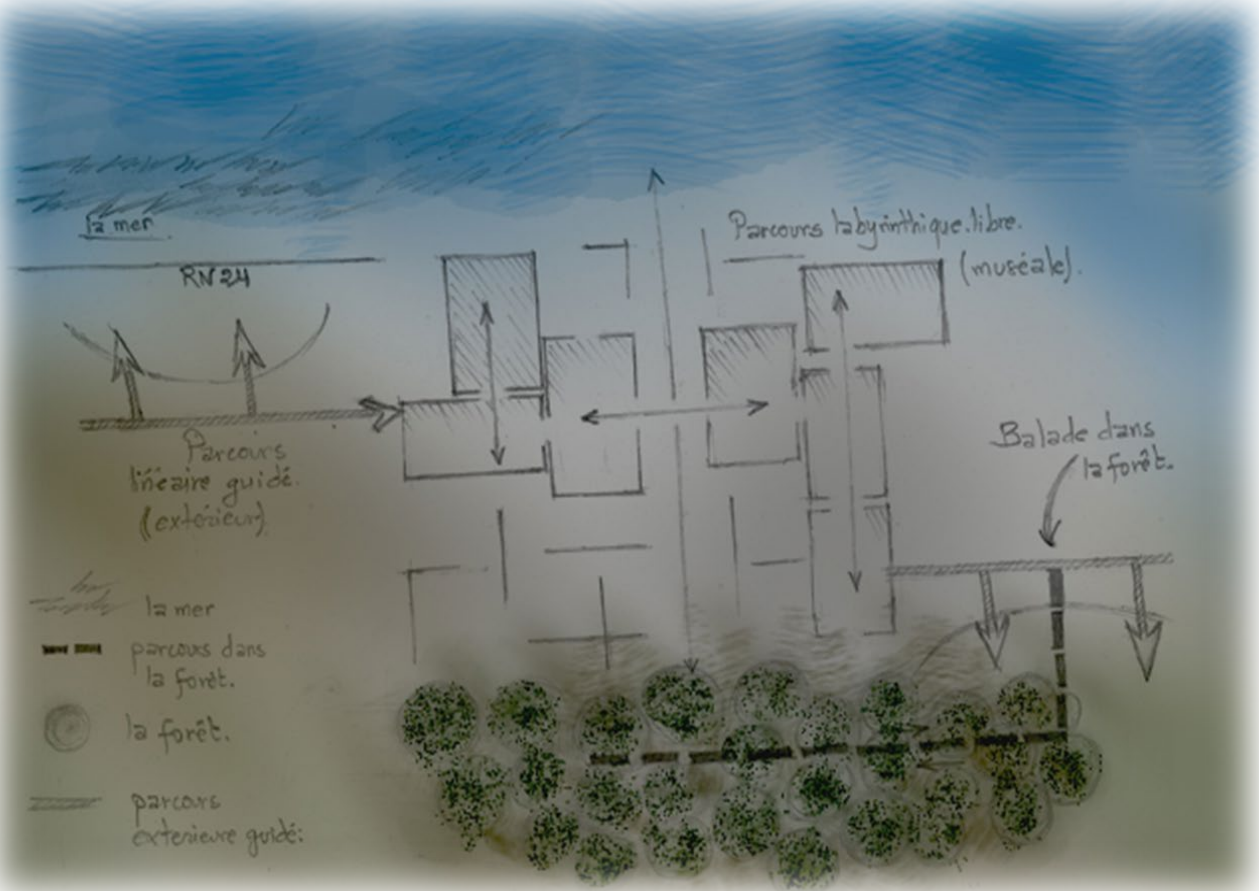 la mer
RN 24
Parcours labyrinthique.libre.
(muséale).
Parcours
linéaire guidé.
(extérieur)
Balade dans
la forêt.
la mer
parcours dans
la forêt.
la forêt.
parcours
exterieure guidé: